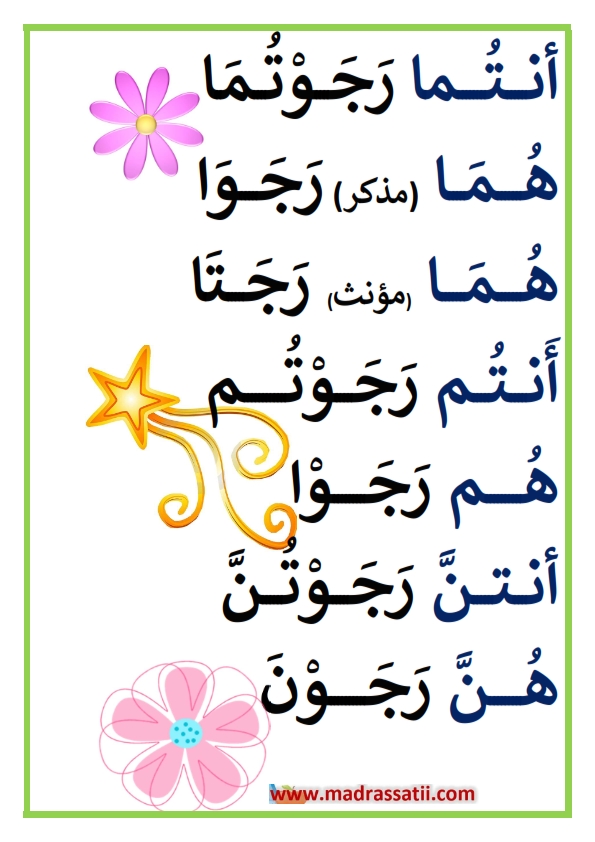 أنـتُـما رَجَـوْتُـمَا
هُـمَـا (مذكر) رَجَـوَا
هُـمَـا (مؤنث) رَجَـتَا
أَنـتُـم رَجَـوْتُـم
هُـم رَجَـوْا
أنـتـنَّ رَجَـوْتُـنَّ
هُـنَّ رَجَـوْنَ
www.madrassatii.com